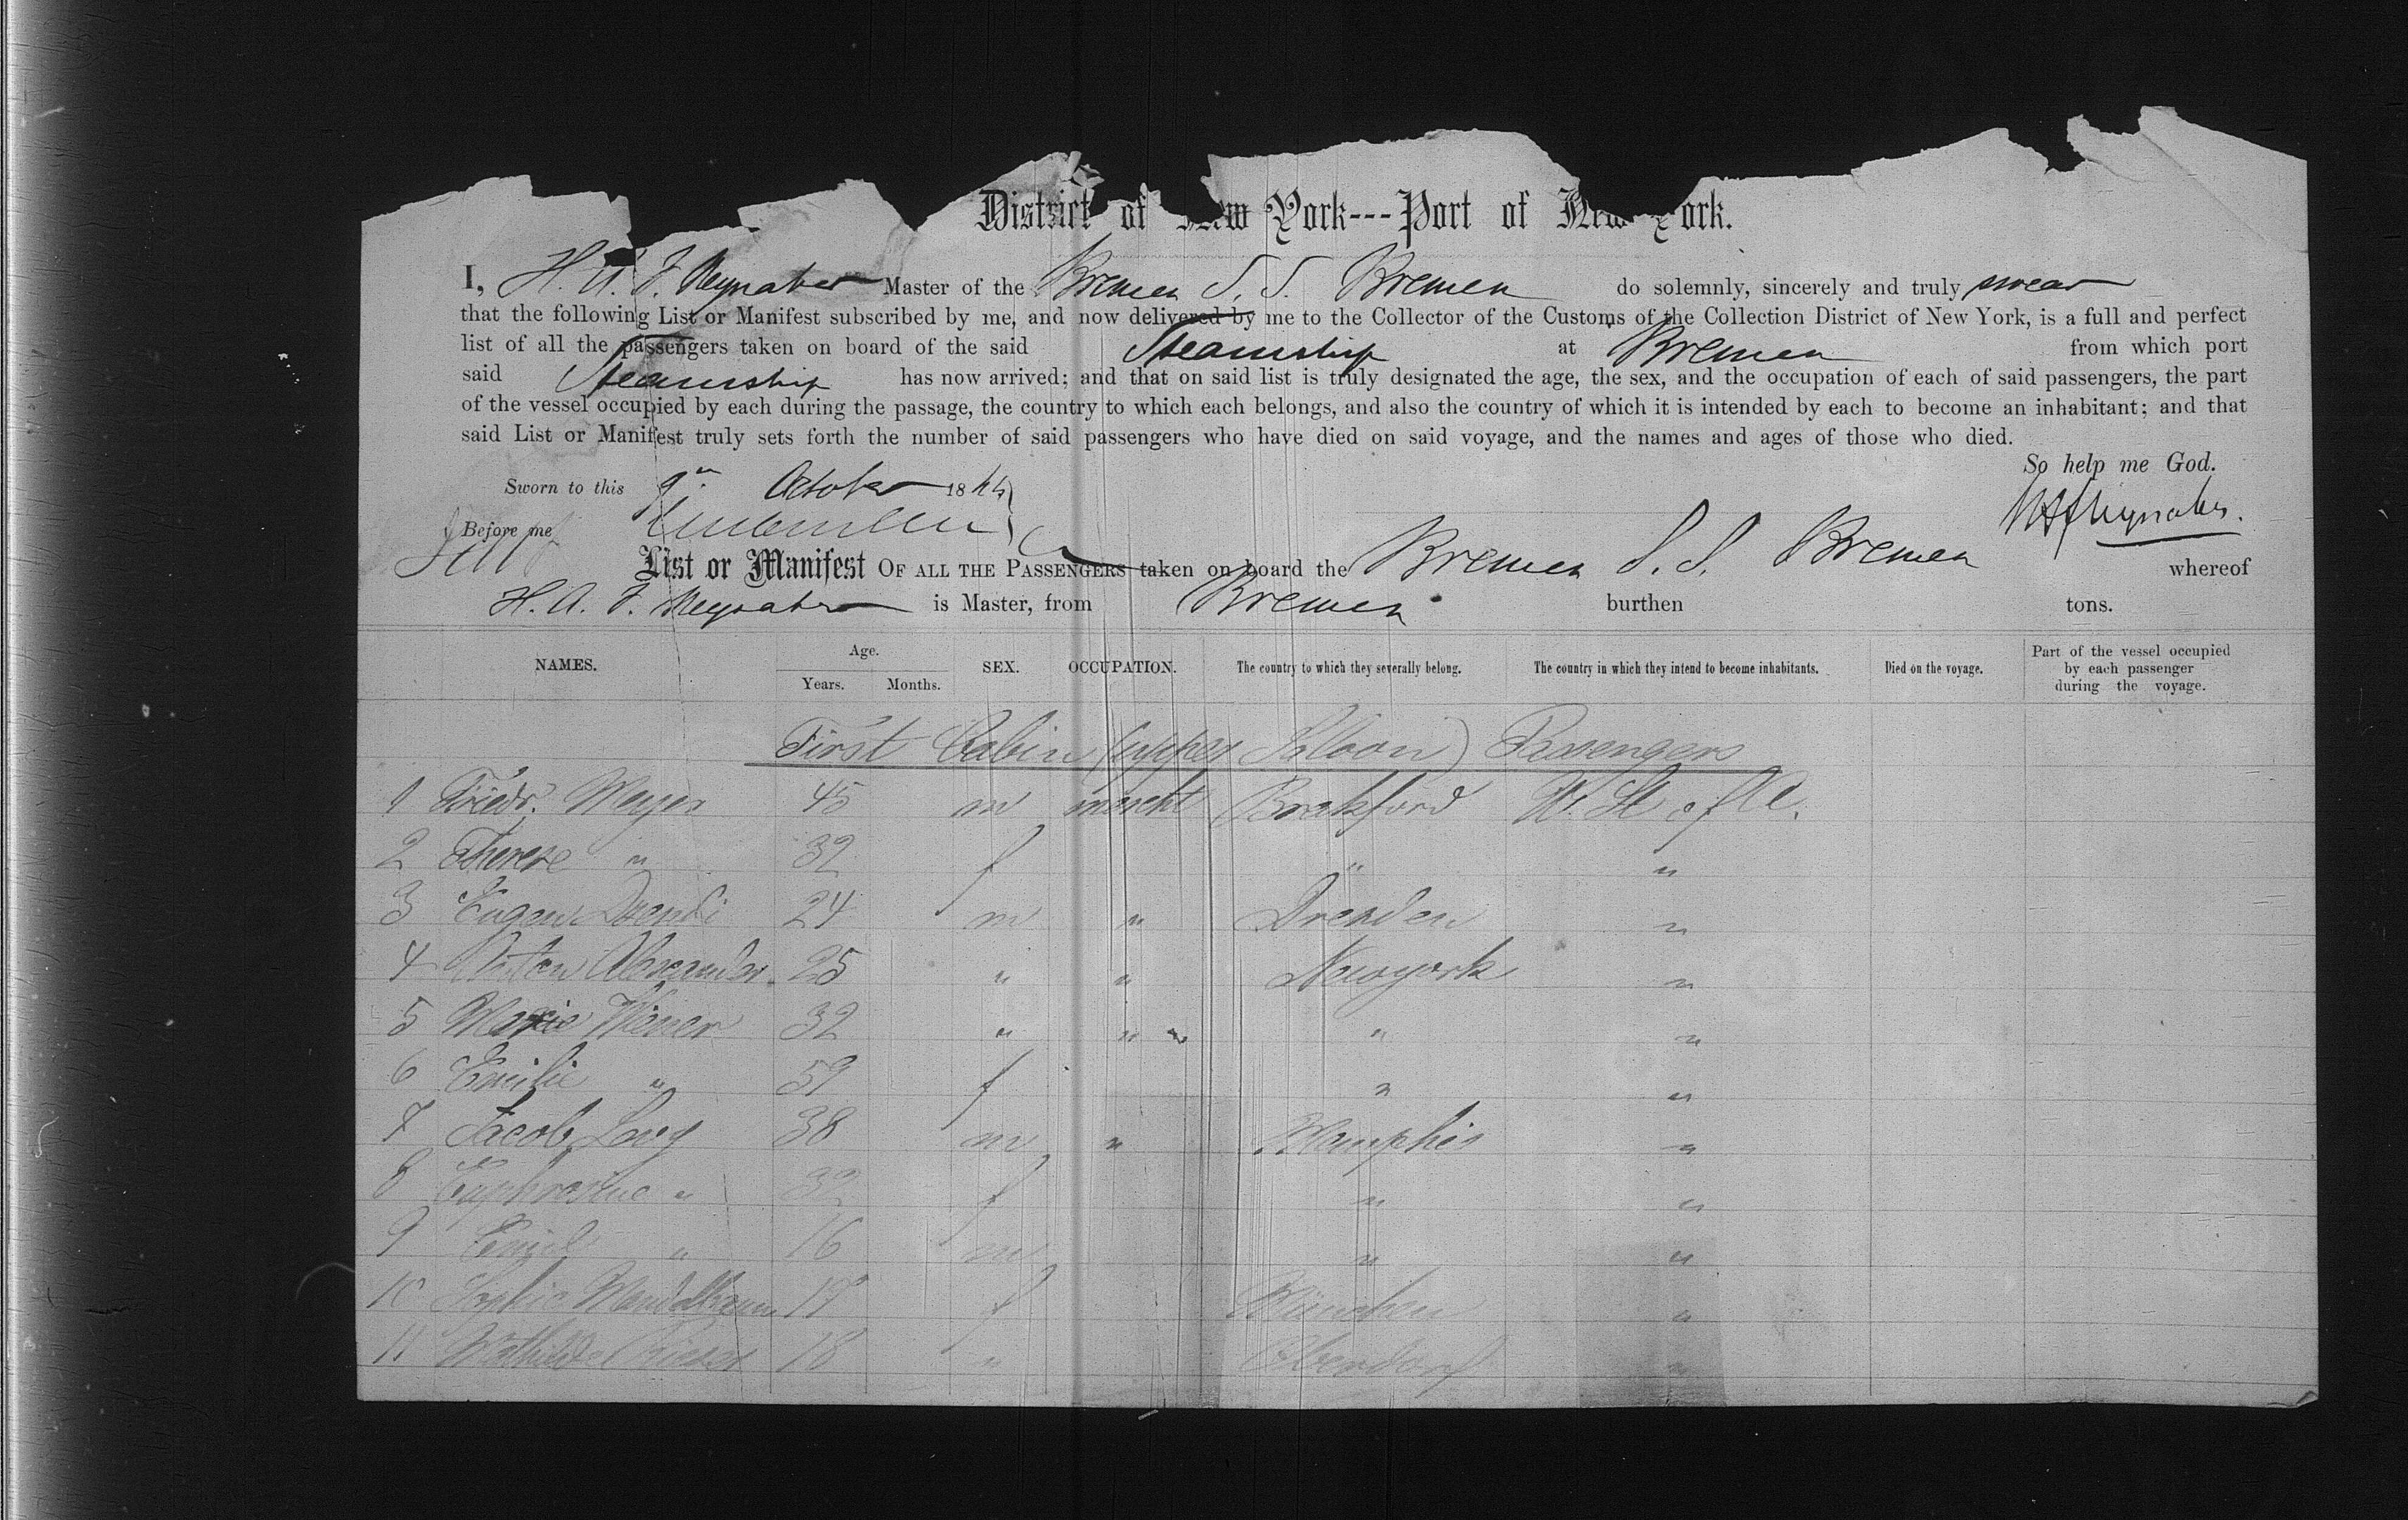 District of New York---Port of New York.
I, H. A. F. Neynaber Master of the Bremen S. S. Bremen do solemnly, sincerely and truly swear
that the following List or Manifest subscribed by me, and now delivered by me to the Collector of the Customs of the Collection District of New York, is a full and perfect
list of all the passengers taken on board of the said Steamship at Bremen from which port
said Steamship has now arrived; and that on said list is truly designated the age, the sex, and the occupation of each of said passengers, the part
of the vessel occupied by each during the passage, the country to which each belongs, and also the country of which it is intended by each to become an inhabitant; and that
said List or Manifest truly sets forth the number of said passengers who have died on said voyage, and the names and ages of those who died.
So help me God.
Sworn to this 9th October 18
HAFNeynaber.
Before me
List or Manifest OF ALL THE PASSENGERS taken on board the Bremen S. S. Bremen whereof
H. A. F. Neynaber is Master, from Bremen burthen tons.
NAMES. Age. Years. Months. SEX. OCCUPATION. The country to which they severally belong. The country in which they intend to become inhabitants. Died on the voyage. Part of the vessel occupied by each passenger during the voyage.
First Cabin (upper Saloon) Passengers
1 Friedr. Meyer 45 m mercht Bradford U. St of A.
2 Therese " 32 f " "
3 Eugen 24 m " Dresden "
4 Anton Alexander 25 " " Newyork "
5 Wiener 32 " " " "
6 Emilie " 59 f " "
7 Jacob Levy 38 m " Memphis "
8 Euphrosine " 32 f " "
9 Emil " 16 m " "
10 Sophie Mandelbaum 19 f München "
11 Mathilde Rieser 18 " Oberdorf "